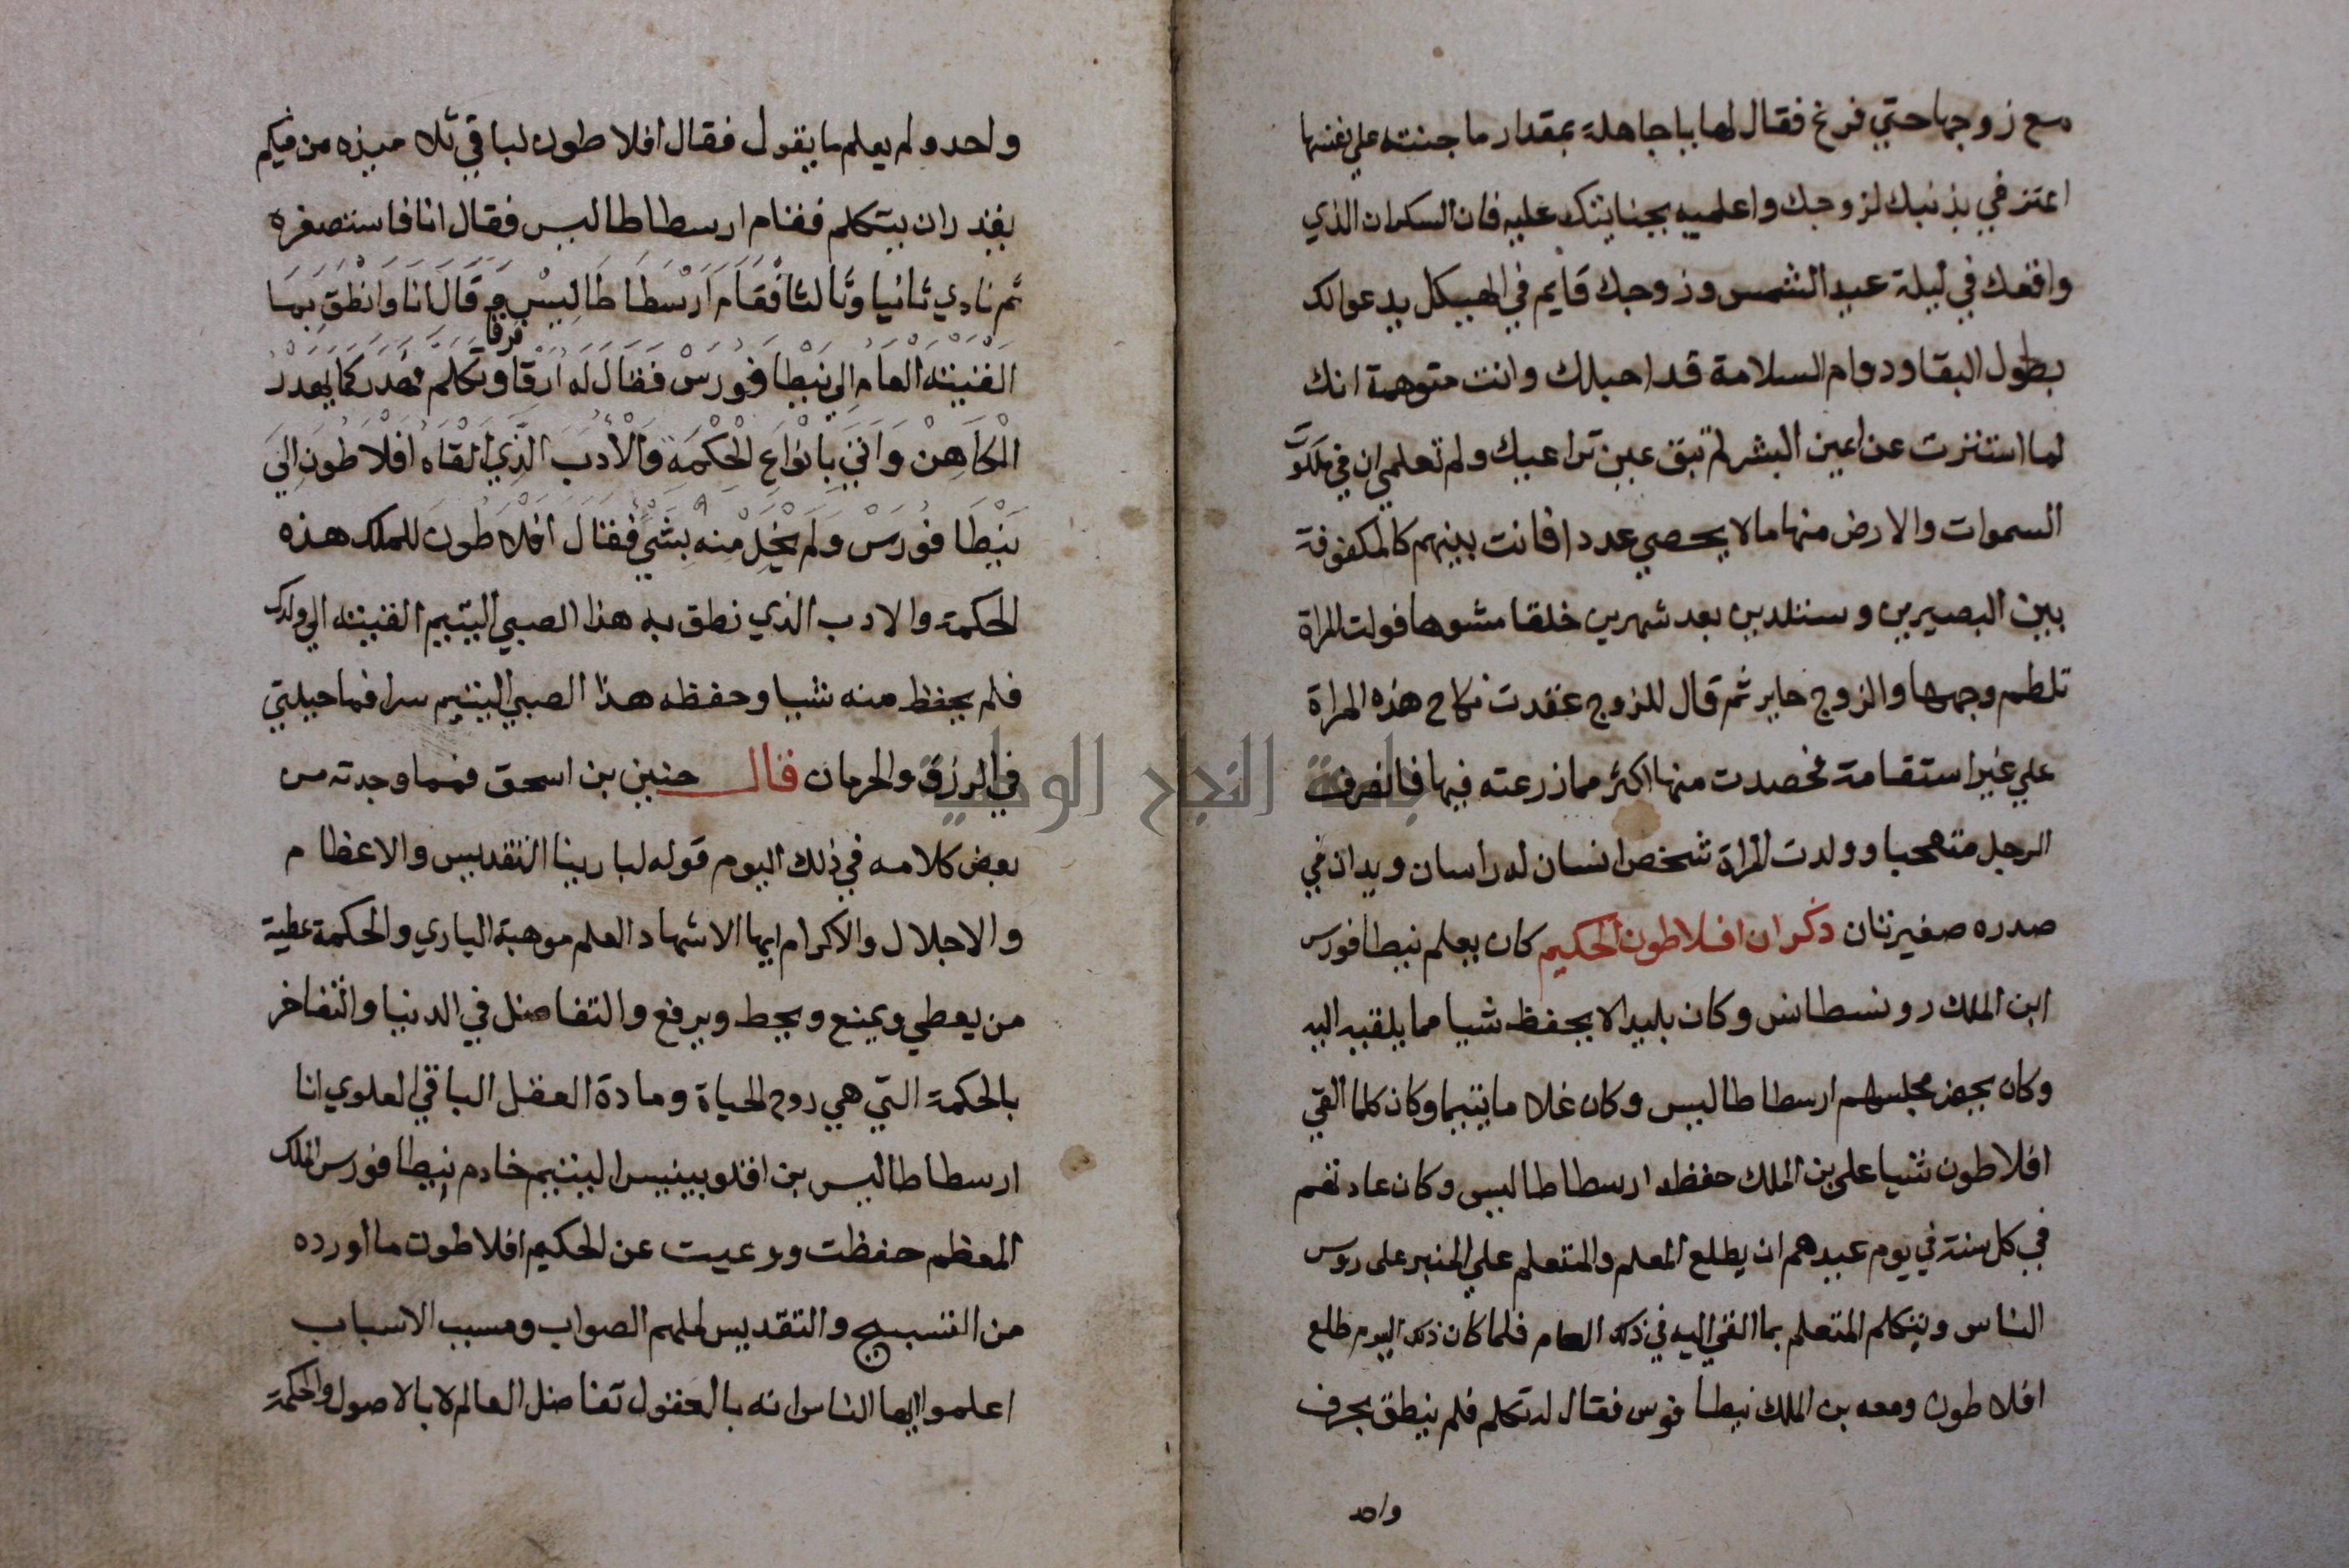 مع زوجها حتي فرغ فقال لها يا جاهلة بمقدار ما جنته علي نفسها
اعترفي بذنبك لزوجك واعلميه بجنايتك عليه فان السكران الذي
واقعك في ليلة عيد الشمس وزوجك قايم في الهيكل يدعو الك
بطول البقا ودوام السلامة قد احبلك وانت متوهمة انك
لما استترت عن اعين البشر لم تبق عين تراعيك ولم تعلمي ان في ملكوت
السموات والارض منها ما لا يحصي عددا فانت بينهم كالمكفوفة
بين البصيرين وستلدين بعد شهرين خلقا مشوها فولت المراة
تلطم وجهها والزوج حاير ثم قال للزوج عقدت نكاح هذه المراة
علي غير استقامة فحصدت منها اكثر مما زرعته فيها فانصرف
الرجل متعجبا وولدت المراة شخص انسان له راسان ويدان في
صدره صغيرتان ذكر ان افلاطون الحكيم كان يعلم نيطافورس
ابن الملك روفسطانس وكان بليدا لا يحفظ شيا مما يلقيه اليه
وكان يحضر مجلسهم ارسطاطاليس وكان غلاما يتيما وكان كلما القي
افلاطون شيا علي بن الملك حفظه ارسطاطاليس وكان عادتهم
في كل سنة في يوم عيدهم ان يطلع المعلم والمتعلم علي المنبر على روس
الناس ويتكلم المتعلم بما القي اليه في ذلك العام فلما كان ذلك اليوم طلع
افلاطون ومعه بن الملك نيطافورس فقال له تكلم فلم ينطق بحرف
واحد
واحد ولم يعلم ما يقول فقال افلاطون لباقي تلاميذه من فيكم
يقدر ان يتكلم فقام ارسطاطاليس فقال انا فاستصغره
ثم نادي ثانيا وثالثا فقام ارسطاطاليس وقال انا وانطق بما
القيته العام الي نيطافورس فقال له ارقا فرقا وتكلم فهدر كما يهدر
الكاهن واتي بانواع الحكمة والادب الذي القاه افلاطون الي
نيطافورس ولم يخل منه بشي فقال افلاطون للملك هذه
الحكمة والادب الذي نطق به هذا الصبي اليتيم القيته الي ولدك
فلم يحفظ منه شيا وحفظه هذا الصبي اليتيم سرا فما حيلتي
في الرزق والحرمان قال حنين بن اسحق فمما وجدته من
بعض كلامه في ذلك اليوم قوله لبارينا التقديس والاعظام
والاجلال والاكرام ايها الاشهاد العلم موهبة الباري والحكمة عطية
من يعطي ويمنع ويحط ويرفع والتفاضل في الدنيا والتفاخر
بالحكمة التي هي روح الحياة ومادة العقل الباقي العلوي انا
ارسطاطاليس بن افلوبينيس اليتيم خادم نيطافورس الملك
المعظم حفظت ووعيت عن الحكيم افلاطون ما اورده
من التسبيح والتقديس لملهم الصواب ومسبب الاسباب
اعلموا ايها الناس انه بالعقول تفاضل العالم لا بالاصول والحكمة
جامعة النجاح الوطنية